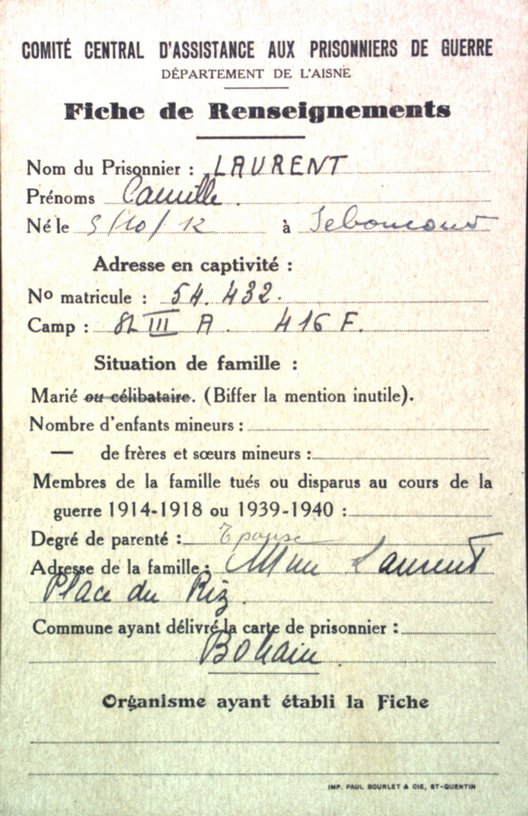 COMITÉ CENTRAL D'ASSISTANCE AUX PRISONNIERS DE GUERRE
DÉPARTEMENT DE L'AISNE
Fiche de Renseignements
Nom du Prisonnier : LAURENT
Prénoms Camille.
Né le 5/10/12 à Seboncourt
Adresse en captivité :
No matricule : 54.432.
Camp : III A. 416 F.
Situation de famille :
Marié ou célibataire. (Biffer la mention inutile).
Nombre d'enfants mineurs :
— de frères et sœurs mineurs :
Membres de la famille tués ou disparus au cours de la
guerre 1914-1918 ou 1939-1940 :
Degré de parenté : Epouse
Adresse de la famille : Mme Laurent
Place du Riz.
Commune ayant délivré la carte de prisonnier :
Bohain.
Organisme ayant établi la Fiche
IMP. PAUL BOURLET & CIE, ST-QUENTIN